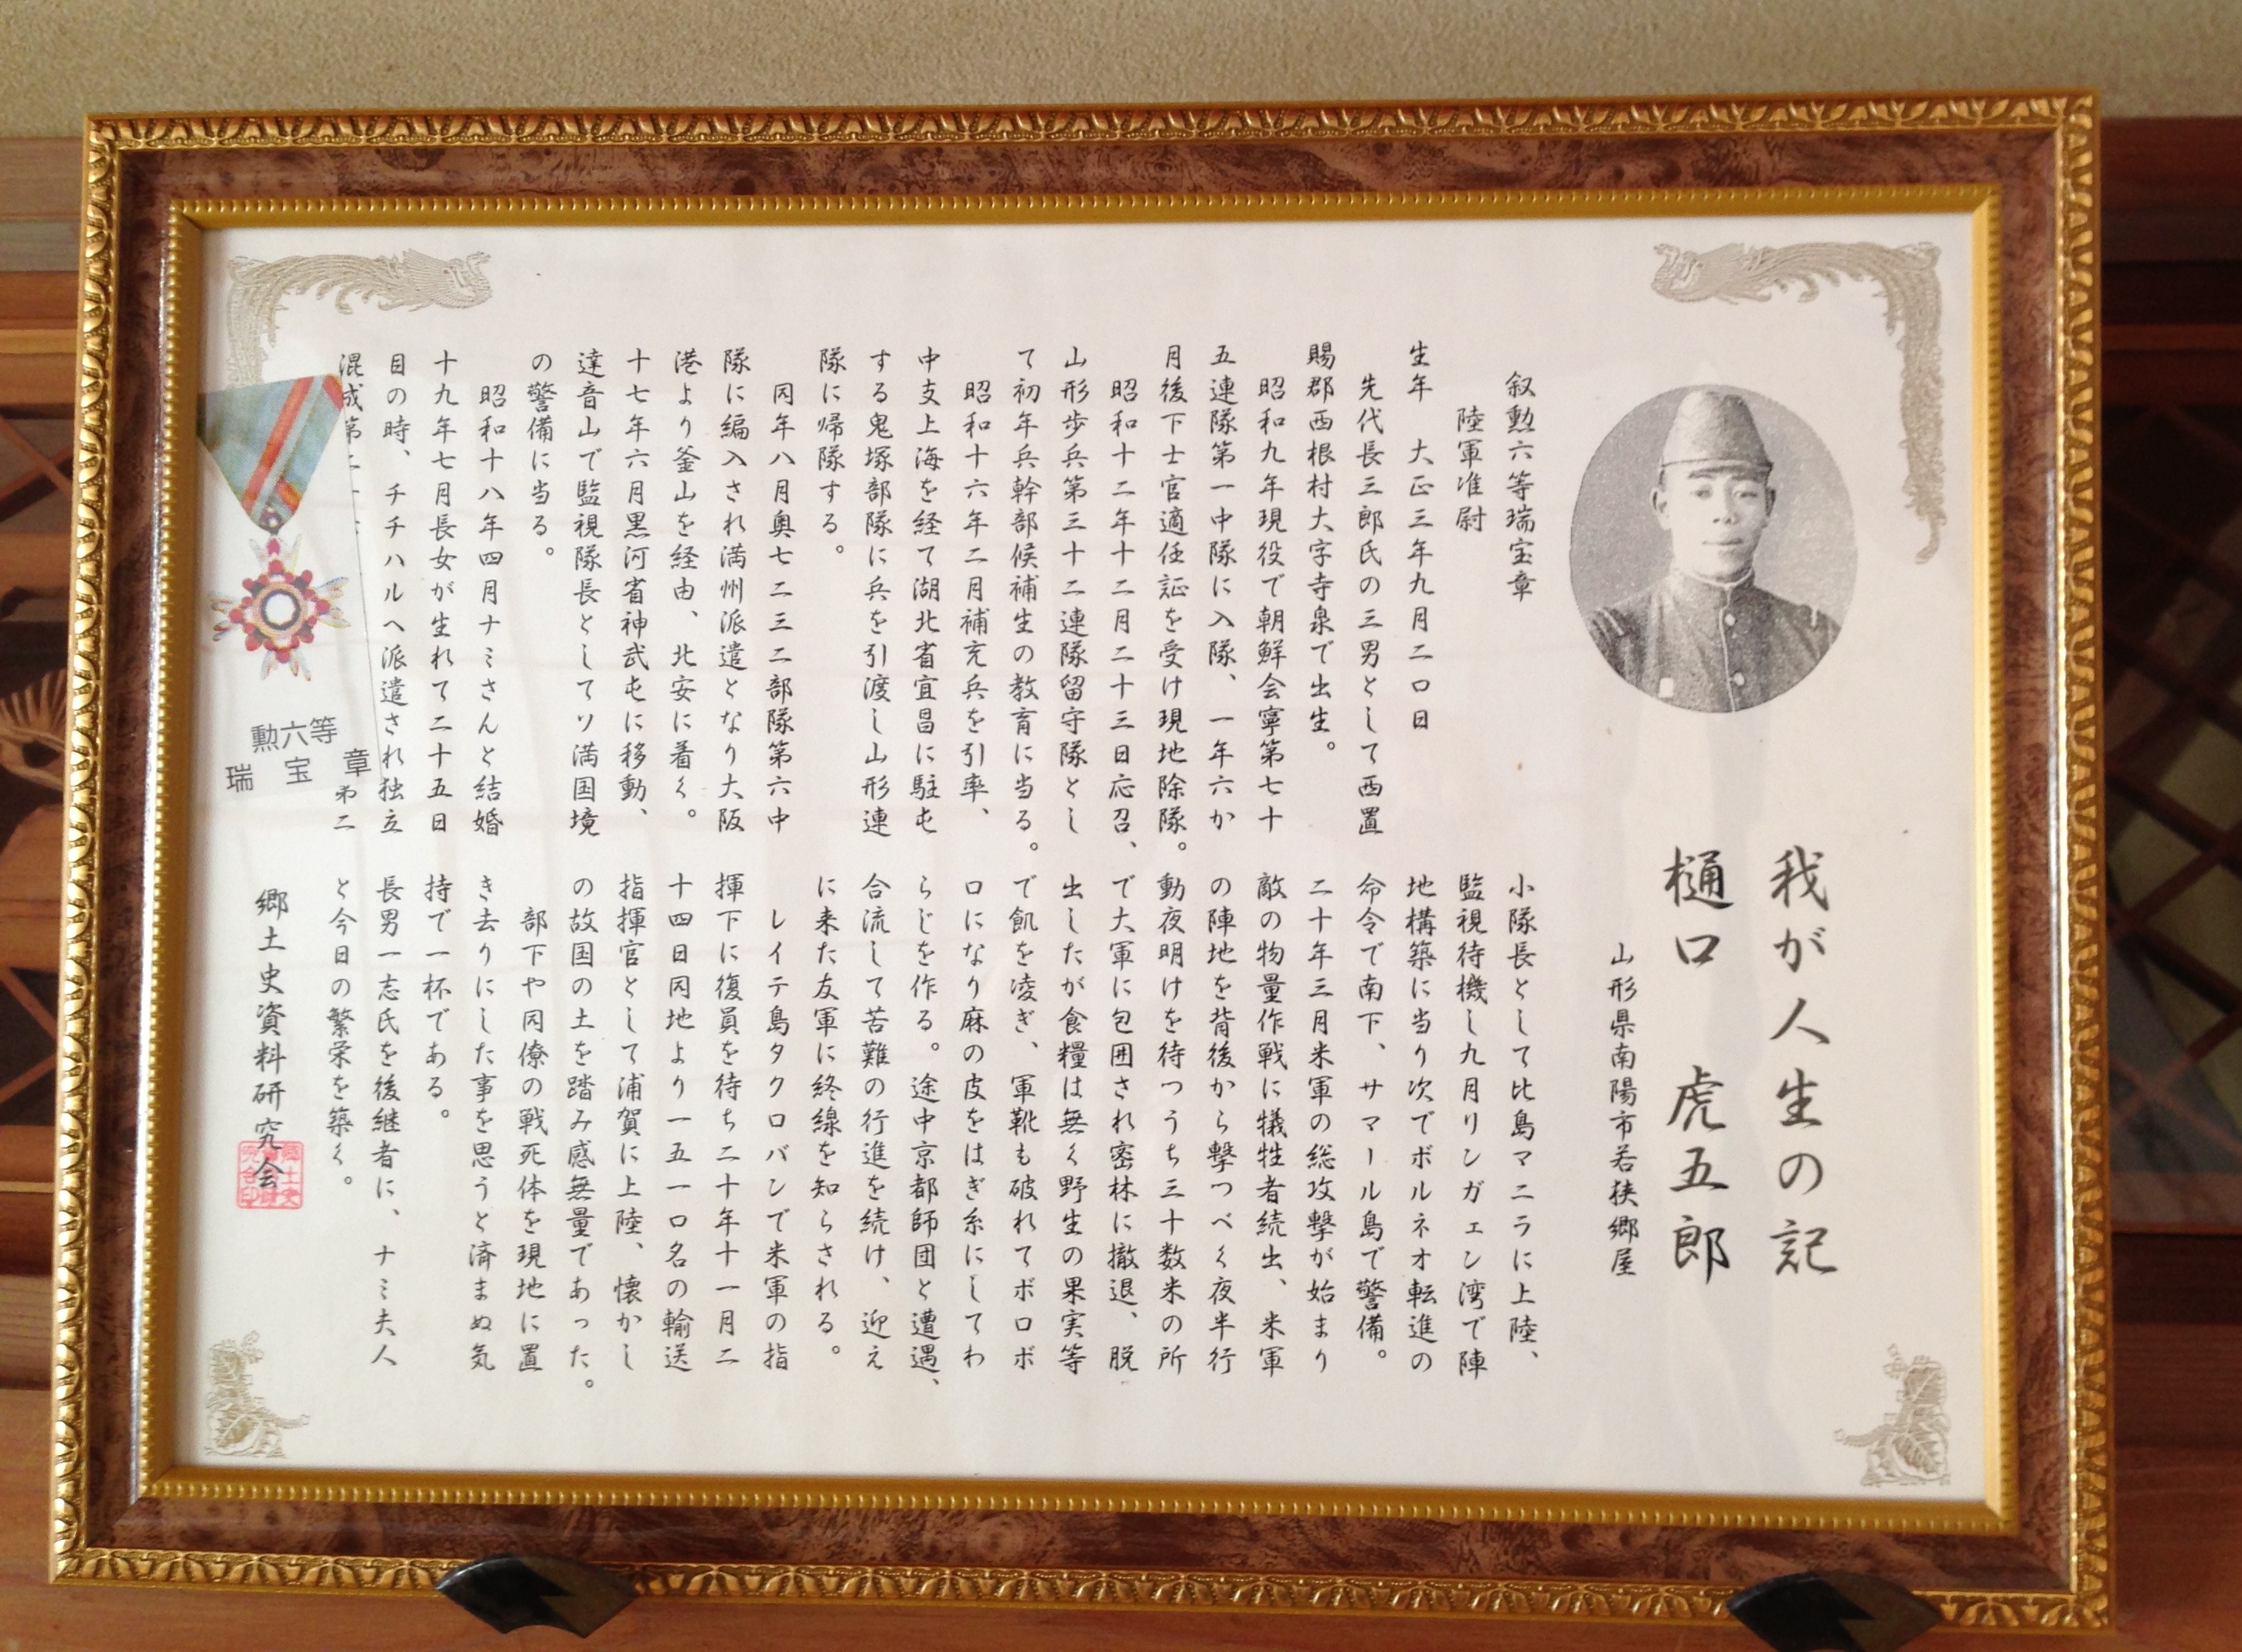 我が人生の記
樋口 虎五郎
山形県南陽市若狭郷屋
叙勲六等瑞宝章
陸軍准尉
生年 大正三年九月二〇日
先代長三郎氏の三男として西置
賜郡西根村大字寺泉で出生。
昭和九年現役で朝鮮会寧第七十
五連隊第一中隊に入隊、一年六か
月後下士官適任証を受け現地除隊。
昭和十二年十二月二十三日応召、
山形歩兵第三十二連隊留守隊とし
て初年兵幹部候補生の教育に当る。
昭和十六年二月補充兵を引率、
中支上海を経て湖北省宜昌に駐屯
する鬼塚部隊に兵を引渡し山形連
隊に帰隊する。
同年八月奥七二三二部隊第六中
隊に編入され満州派遣となり大阪
港より釜山を経由、北安に着く。
十七年六月黒河省神武屯に移動、
達音山で監視隊長としてソ満国境
の警備に当る。
昭和十八年四月ナミさんと結婚
十九年七月長女が生れて二十五日
目の時、チチハルへ派遣され独立
混成第二 第二
小隊長として比島マニラに上陸、
監視待機し九月リンガエン湾で陣
地構築に当り次でボルネオ転進の
命令で南下、サマール島で警備。
二十年三月米軍の総攻撃が始まり
敵の物量作戦に犠牲者続出、米軍
の陣地を背後から撃つべく夜半行
動夜明けを待つうち三十数米の所
で大軍に包囲され密林に撤退、脱
出したが食糧は無く野生の果実等
で飢を凌ぎ、軍靴も破れてボロボ
ロになり麻の皮をはぎ糸にしてわ
らじを作る。途中京都師団と遭遇、
合流して苦難の行進を続け、迎え
に来た友軍に終線を知らされる。
レイテ島タクロバンで米軍の指
揮下に復員を待ち二十年十一月二
十四日同地より一五一〇名の輸送
指揮官として浦賀に上陸、懐かし
の故国の土を踏み感無量であった。
部下や同僚の戦死体を現地に置
き去りにした事を思うと済まぬ気
持で一杯である。
長男一志氏を後継者に、ナミ夫人
と今日の繁栄を築く。
郷土史資料研究会
勲六等
瑞宝章